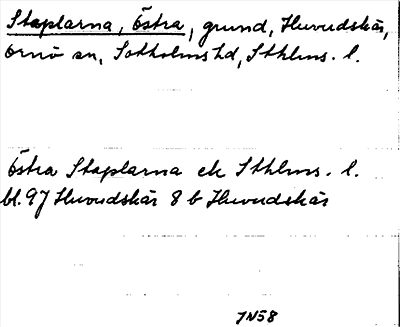 Staplarna, Östra, grund, Huvudskär,
Ornö sn, Sotholms hd, Sthlms. l.
Östra Staplarna ek Sthlms. l.
bl. 97 Huvudskär 8 b Huvudskär
JN58